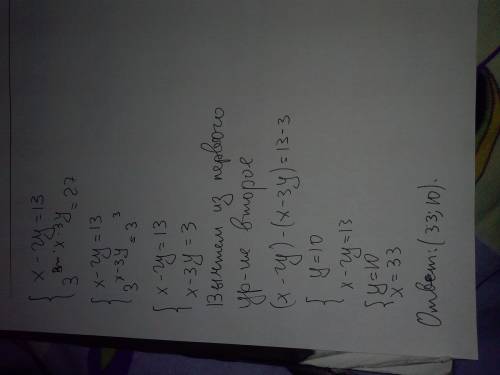 { x - 2y = 13
3^{x - 3y} = 27
{ x - 2y = 13
3^{x-3y} = 3^3
{ x - 2y = 13
x - 3y = 3
Вычтем из первого
ур-ие второе
(x - 2y) - (x - 3y) = 13 - 3
{ y = 10
x - 2y = 13
{ y = 10
x = 33
Ответ: (33; 10).